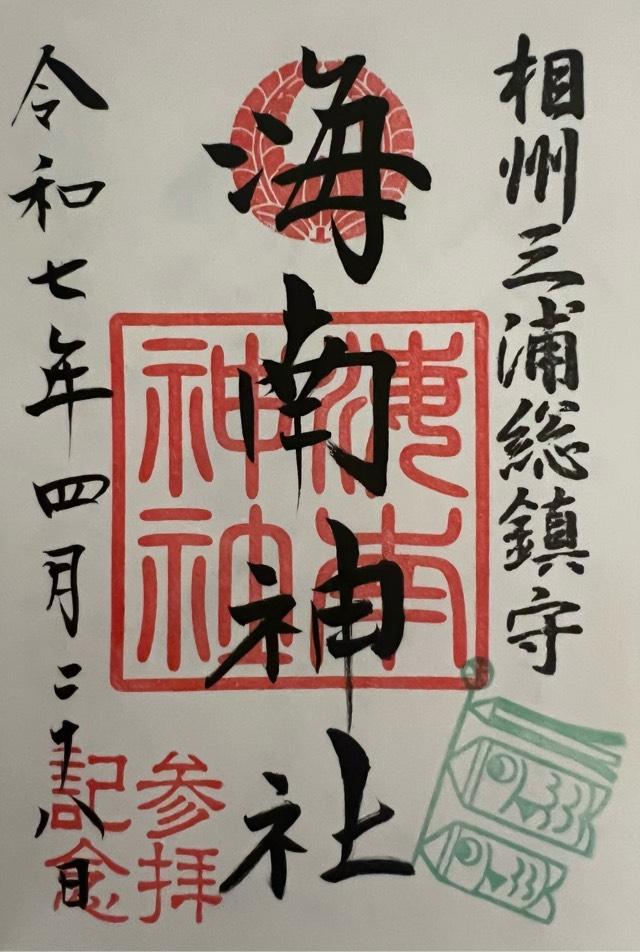 相州三浦総鎮守
海南神社
令和七年四月二十八日
海南
神社
参拝
記念